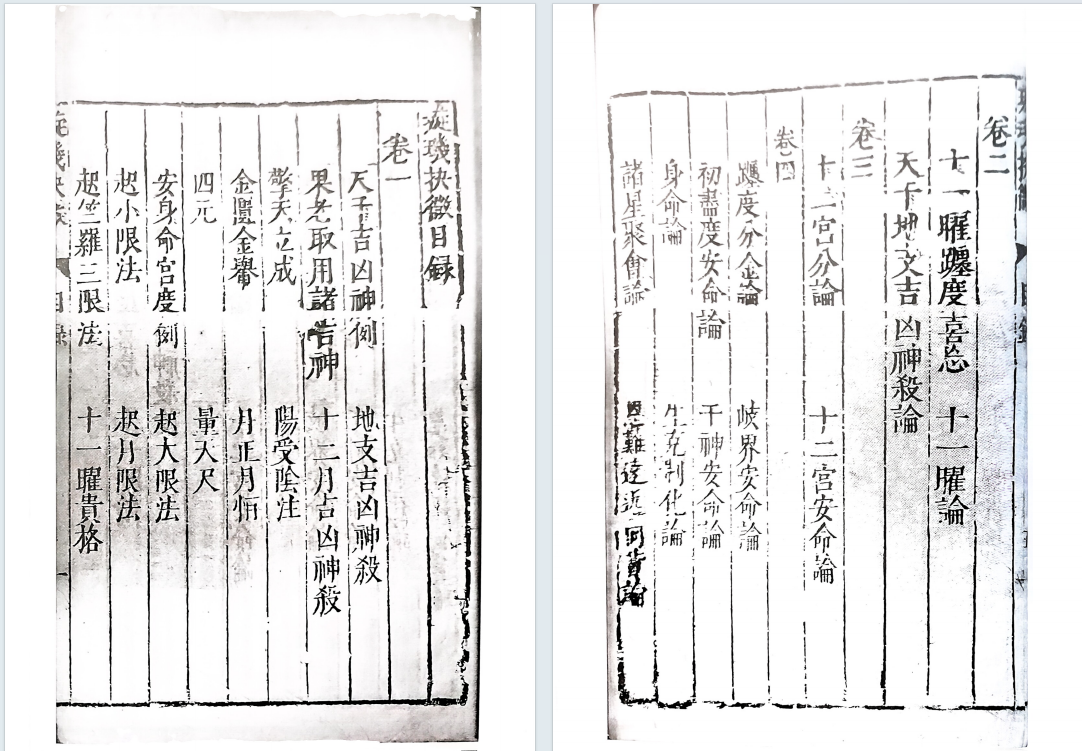 璇璣抉微目録
卷一
天干吉凶神例 地支吉凶神殺
果老取用諸吉神 十二月吉凶神殺
擎天立成 陽受陰注
金匱金轝
四元 量天尺
安身命宮度例 起大限法
起小限法 起月限法
起竺羅三限法 十一曜貴格
卷二
十一曜躔度喜忌 十一曜論
天干地支吉凶神殺論
卷三
十二宮分論 十二宮安命論
卷四
躔度分金論 岐界安命論
初盡度安命論 干神安命論
身命論 生克制化論
諸星聚會論